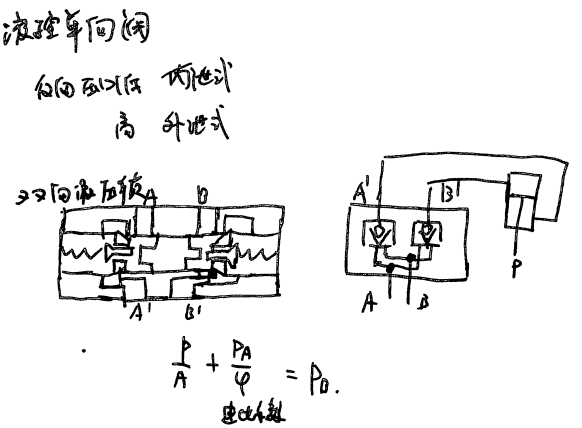 液控单向阀
反向压口低 内泄式
高 外泄式
双向液压锁 A B
A' B'
A' B'
P
A B
P/A + P_A/φ = P_B.
速比系数